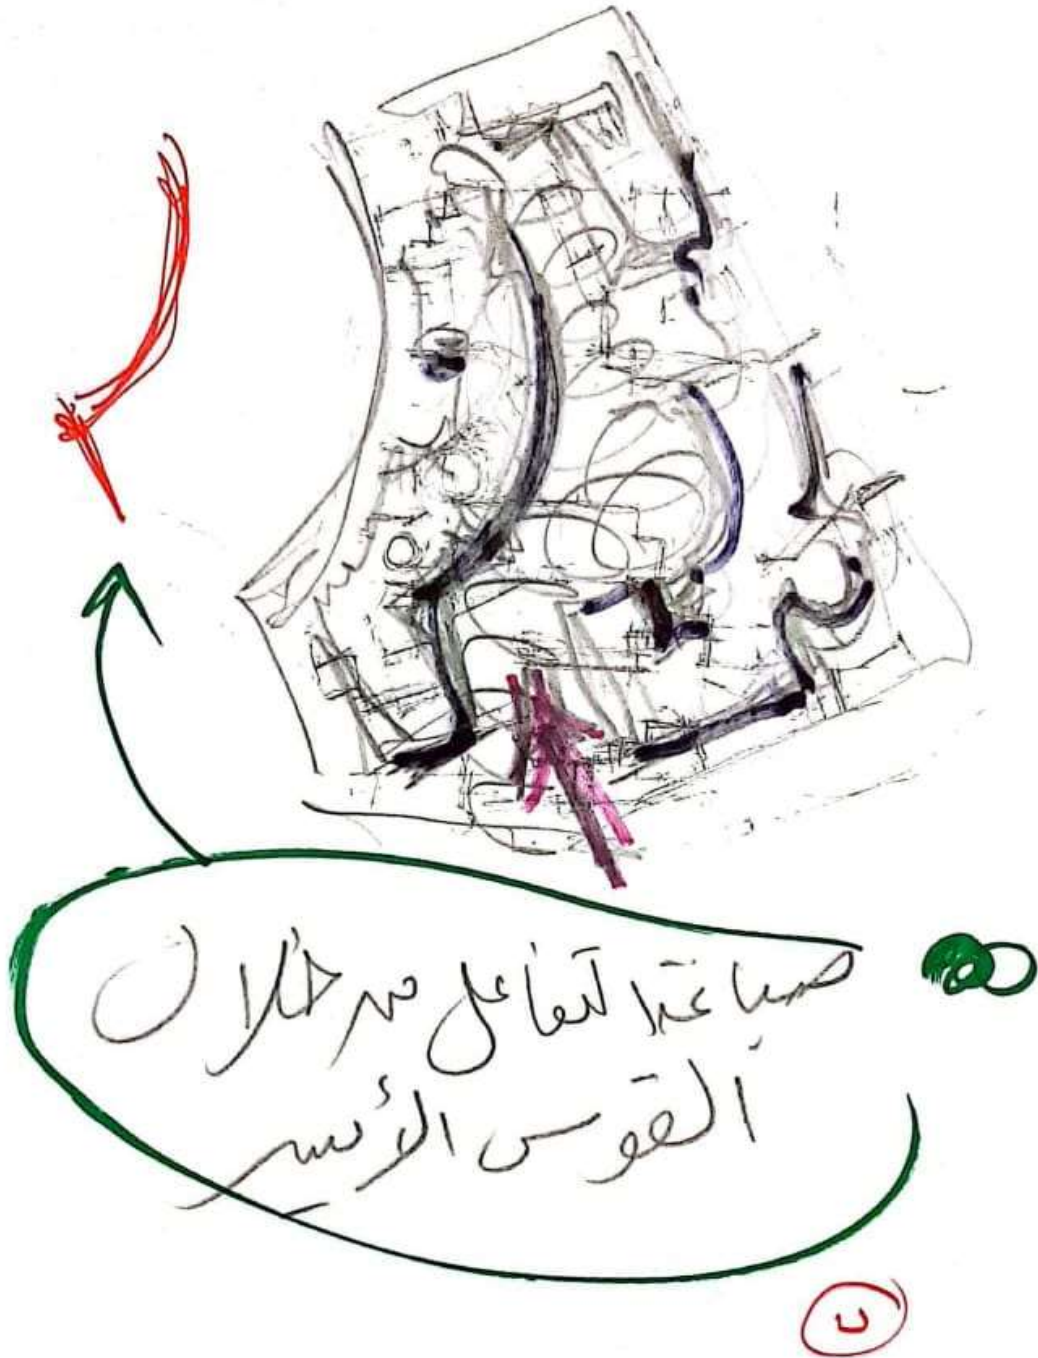 صياغة التفاعل من خلال
القوس الأيسر
ب